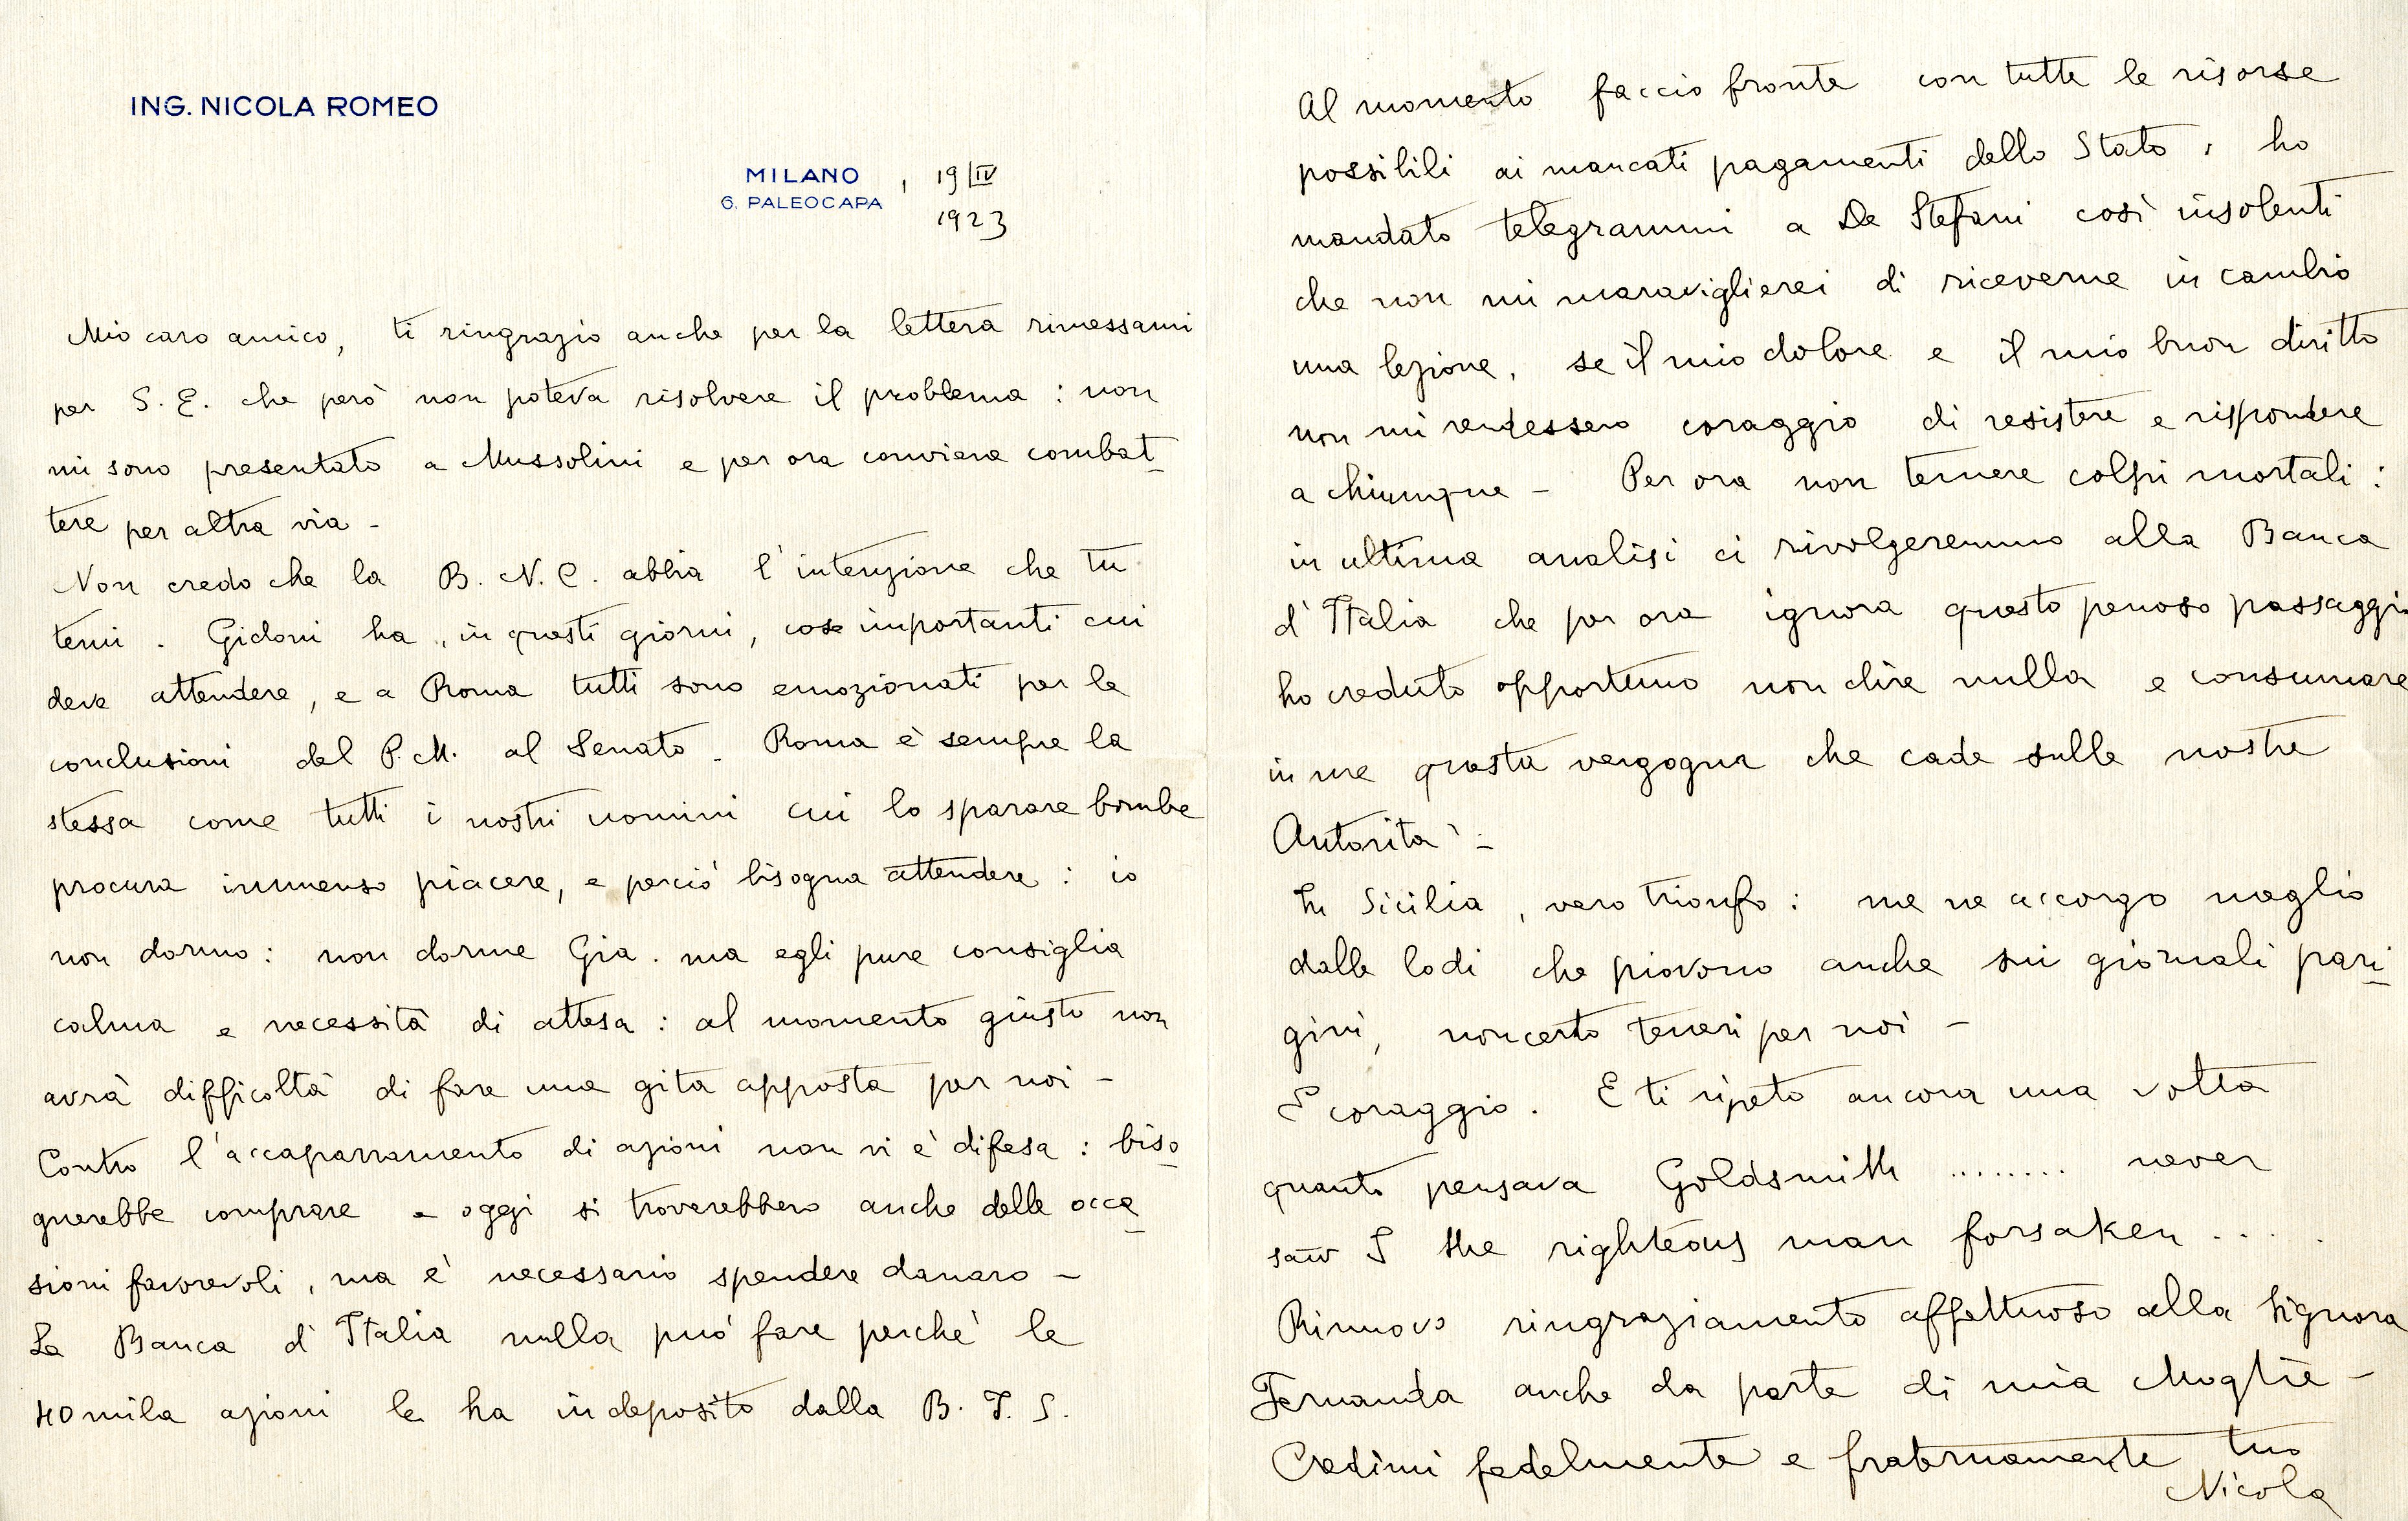 ING. NICOLA ROMEO
MILANO , 19/IV
6. PALEOCAPA 1923
Mio caro amico, ti ringrazio anche per la lettera rimessami
per S. E. che però non poteva risolvere il problema : non
mi sono presentato a Mussolini e per ora conviene combat_
tere per altra via -
Non credo che la B. N. C. abbia l'intenzione che tu
temi . Gidoni ha, in questi giorni, cose importanti cui
deve attendere, e a Roma tutti sono emozionati per le
conclusioni del P. M. al Senato - Roma è sempre la
stessa come tutti i nostri uomini cui lo sparare bombe
procura immenso piacere, e perciò bisogna attendere : io
non dormo : non dorme Gia. ma egli pure consiglia
calma e necessità di attesa : al momento giusto non
avrà difficoltà di fare una gita apposta per noi -
Contro l'accaparramento di azioni non vi è difesa : biso_
gnerebbe comprare e oggi si troverebbero anche delle occa_
sioni favorevoli, ma è necessario spendere danaro -
La Banca d'Italia nulla può fare perchè le
40 mila azioni le ha in deposito dalla B. I. S.
Al momento faccio fronte con tutte le risorse
possibili ai mancati pagamenti dello Stato ; ho
mandato telegrammi a De Stefani così insolenti
che non mi maraviglierei di riceverne in cambio
una lezione, se il mio dolore e il mio buon diritto
non mi rendessero coraggio di resistere e rispondere
a chiunque - Per ora non temere colpi mortali :
in ultima analisi ci rivolgeremo alla Banca
d'Italia che per ora ignora questo penoso passaggio
ho creduto opportuno non dire nulla e consumare
in me questa vergogna che cade sulle nostre
Autorità -
In Sicilia, vero trionfo : me ne accorgo meglio
dalle lodi che piovono anche sui giornali pari_
gini, non certo teneri per noi -
E coraggio. E ti ripeto ancora una volta
quanto pensava Goldsmith ........ never
saw I the righteous man forsaken ....
Rinnovo ringraziamento affettuoso alla Signora
Fernanda anche da parte di mia Moglie -
Credimi fedelmente e fraternamente tuo
Nicola